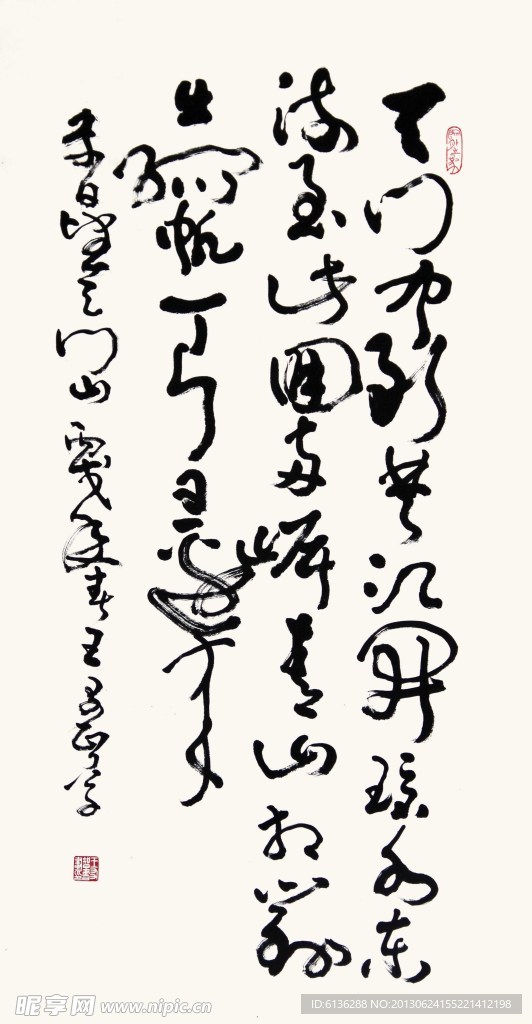 天门中断楚江開碧水东
流至此回两岸青山相對
出孤帆一片日邊来
李白望天门山 年春王
昵享网 www.nipic.cn
ID:6136288 NO:20130624155221412198